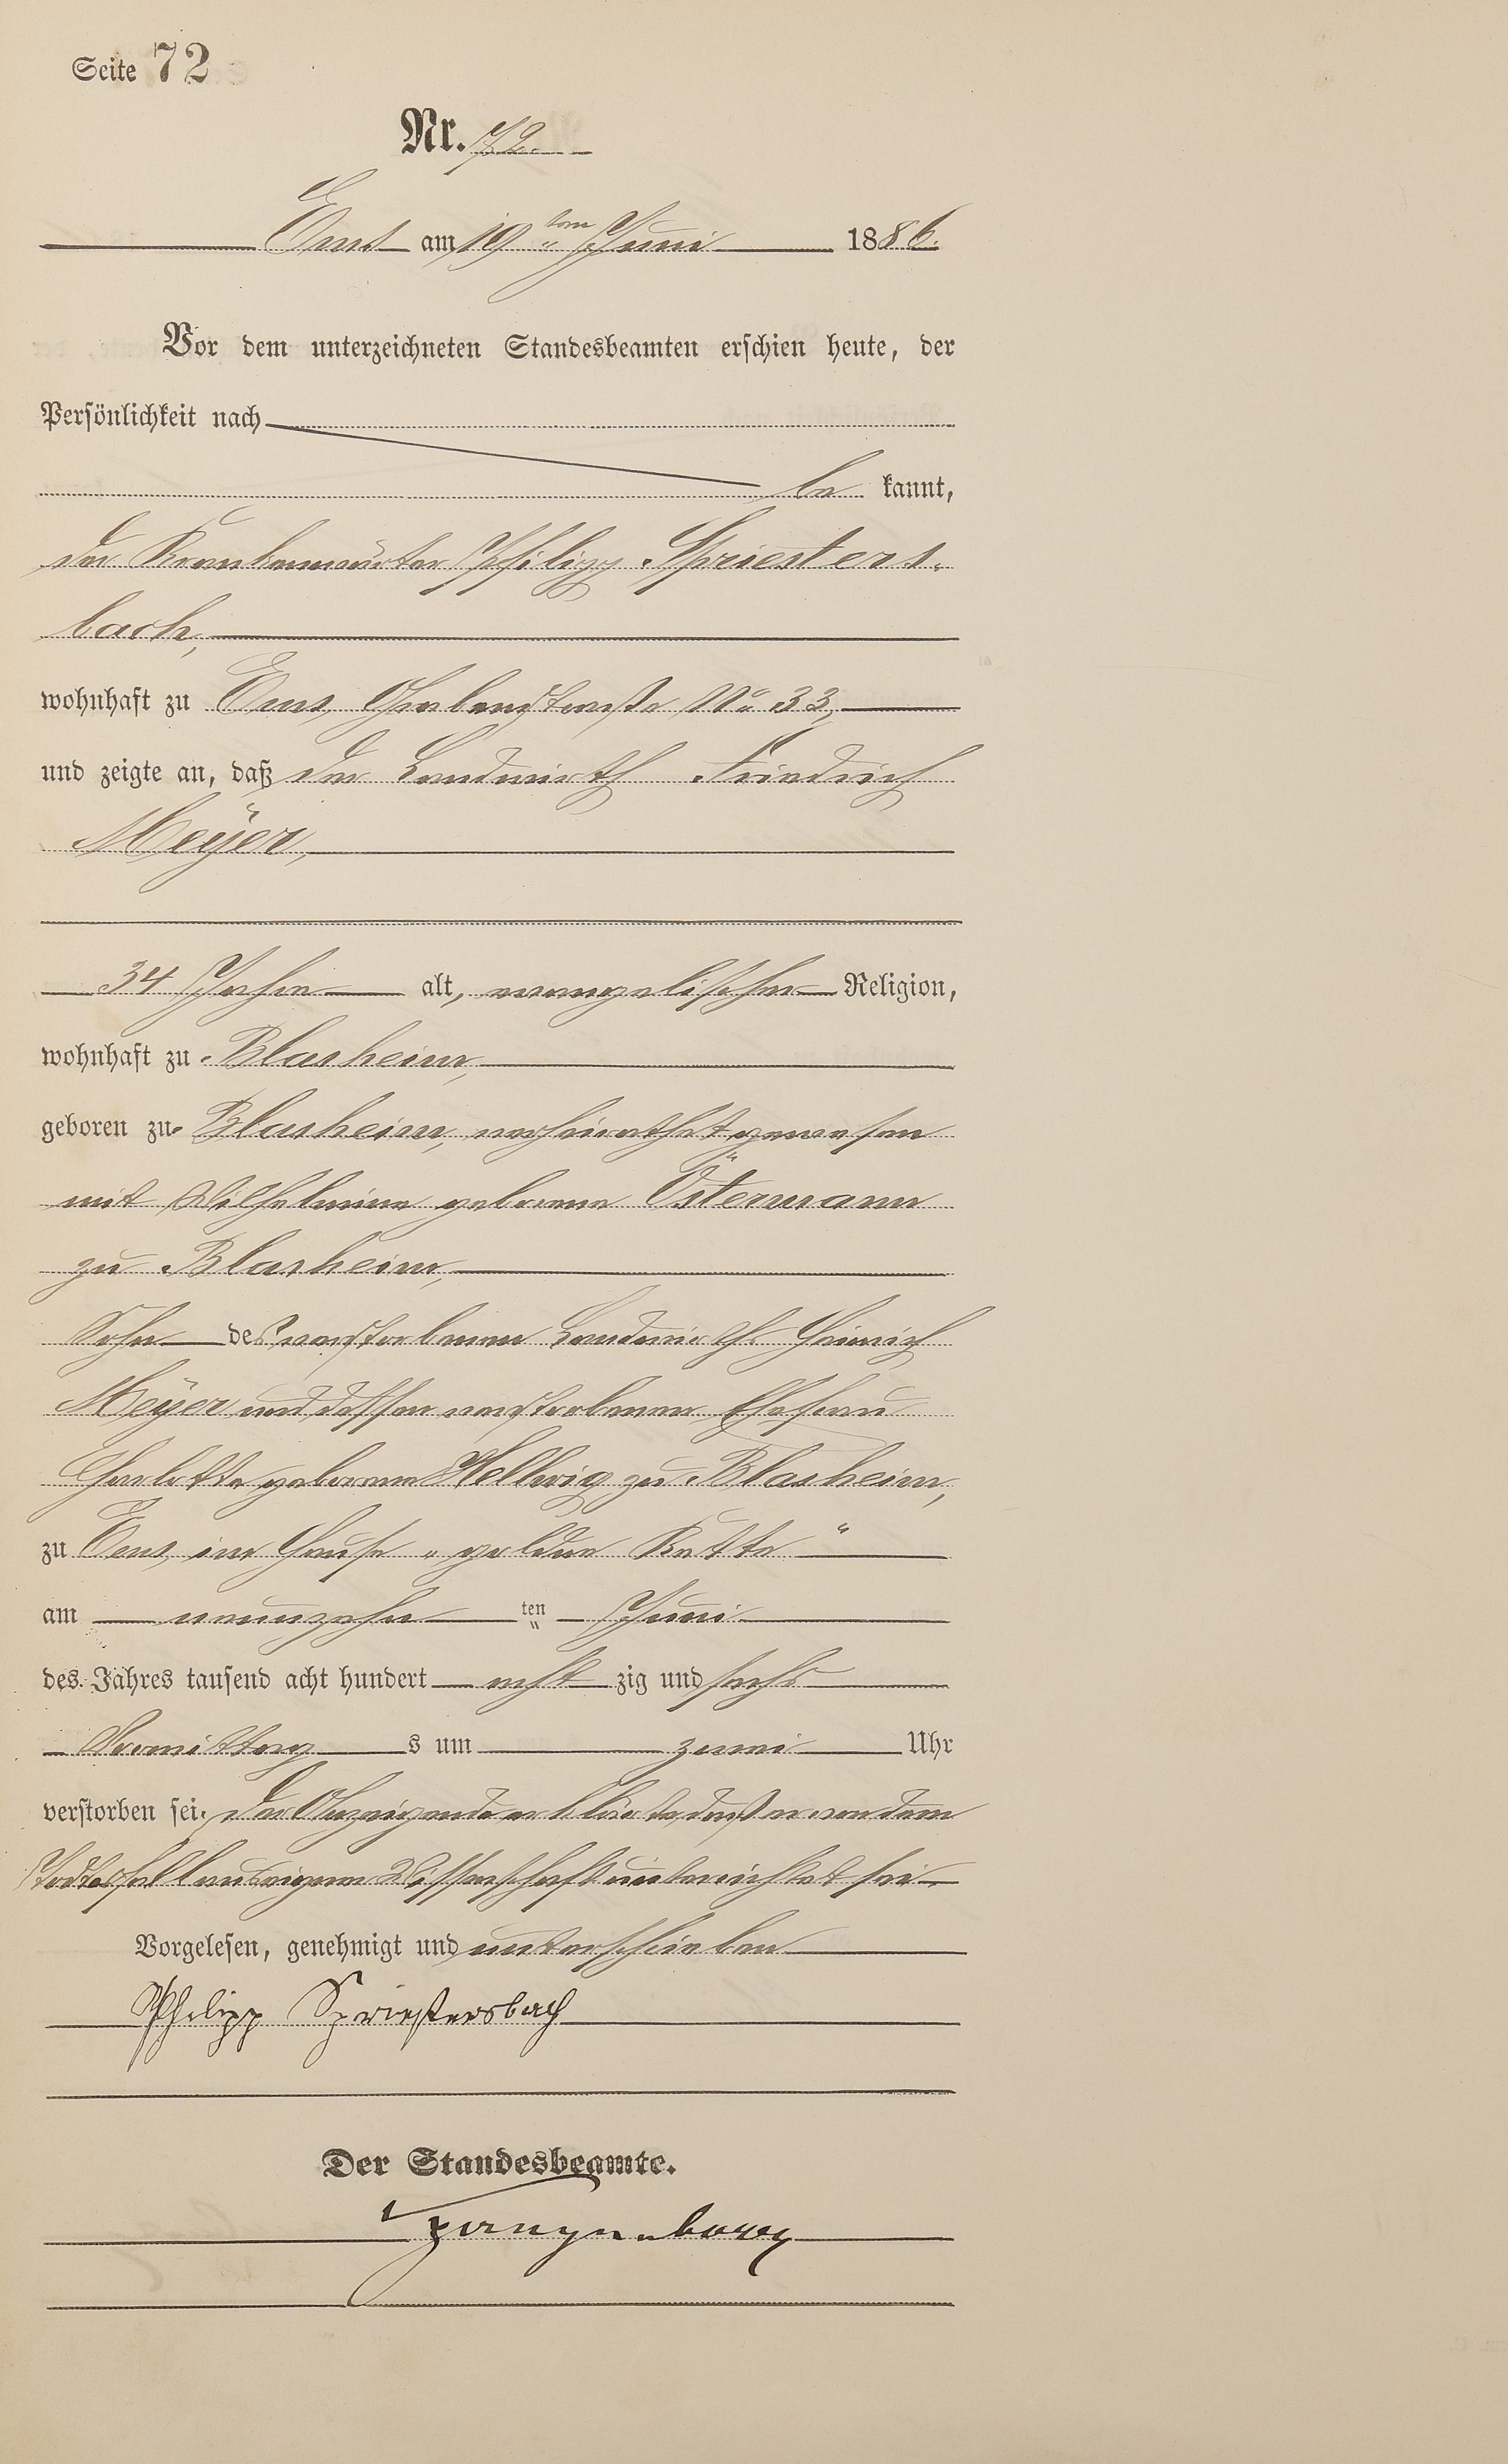 Seite 72
Nr. 72.
Ems am 19ten Juni 1886.
Vor dem unterzeichneten Standesbeamten erschien heute, der
Persönlichkeit nach
be kannt,
der Krankenwärter Philipp Spriesters-
bach,
wohnhaft zu Ems, Grabenstraße No 33,
und zeigte an, daß der Landwirth Friedrich
Meÿer,
34 Jahre alt, evangelischer Religion,
wohnhaft zu Blasheim,
geboren zu Blasheim, verheirathet gewesen
mit Wilhelmine geborene Östermann
zu Blasheim,
Sohn des verstorbenen Landwirths Heinrich
Meÿer und dessen verstorbenen Ehefrau
Charlotte geborene Hellwig zu Blasheim,
zu Ems, im Hause „goldne Kette“
am neunzehn ten Juni
des Jahres tausend acht hundert acht zig und sechs
Vormittag s um zwei Uhr
verstorben sei. Der Anzeigende erklärte, daß er von dem
Todesfall aus eigener Wissenschaft unterrichtet sei.
Vorgelesen, genehmigt und unterschrieben
Philipp Spriestersbach
Der Standesbeamte.